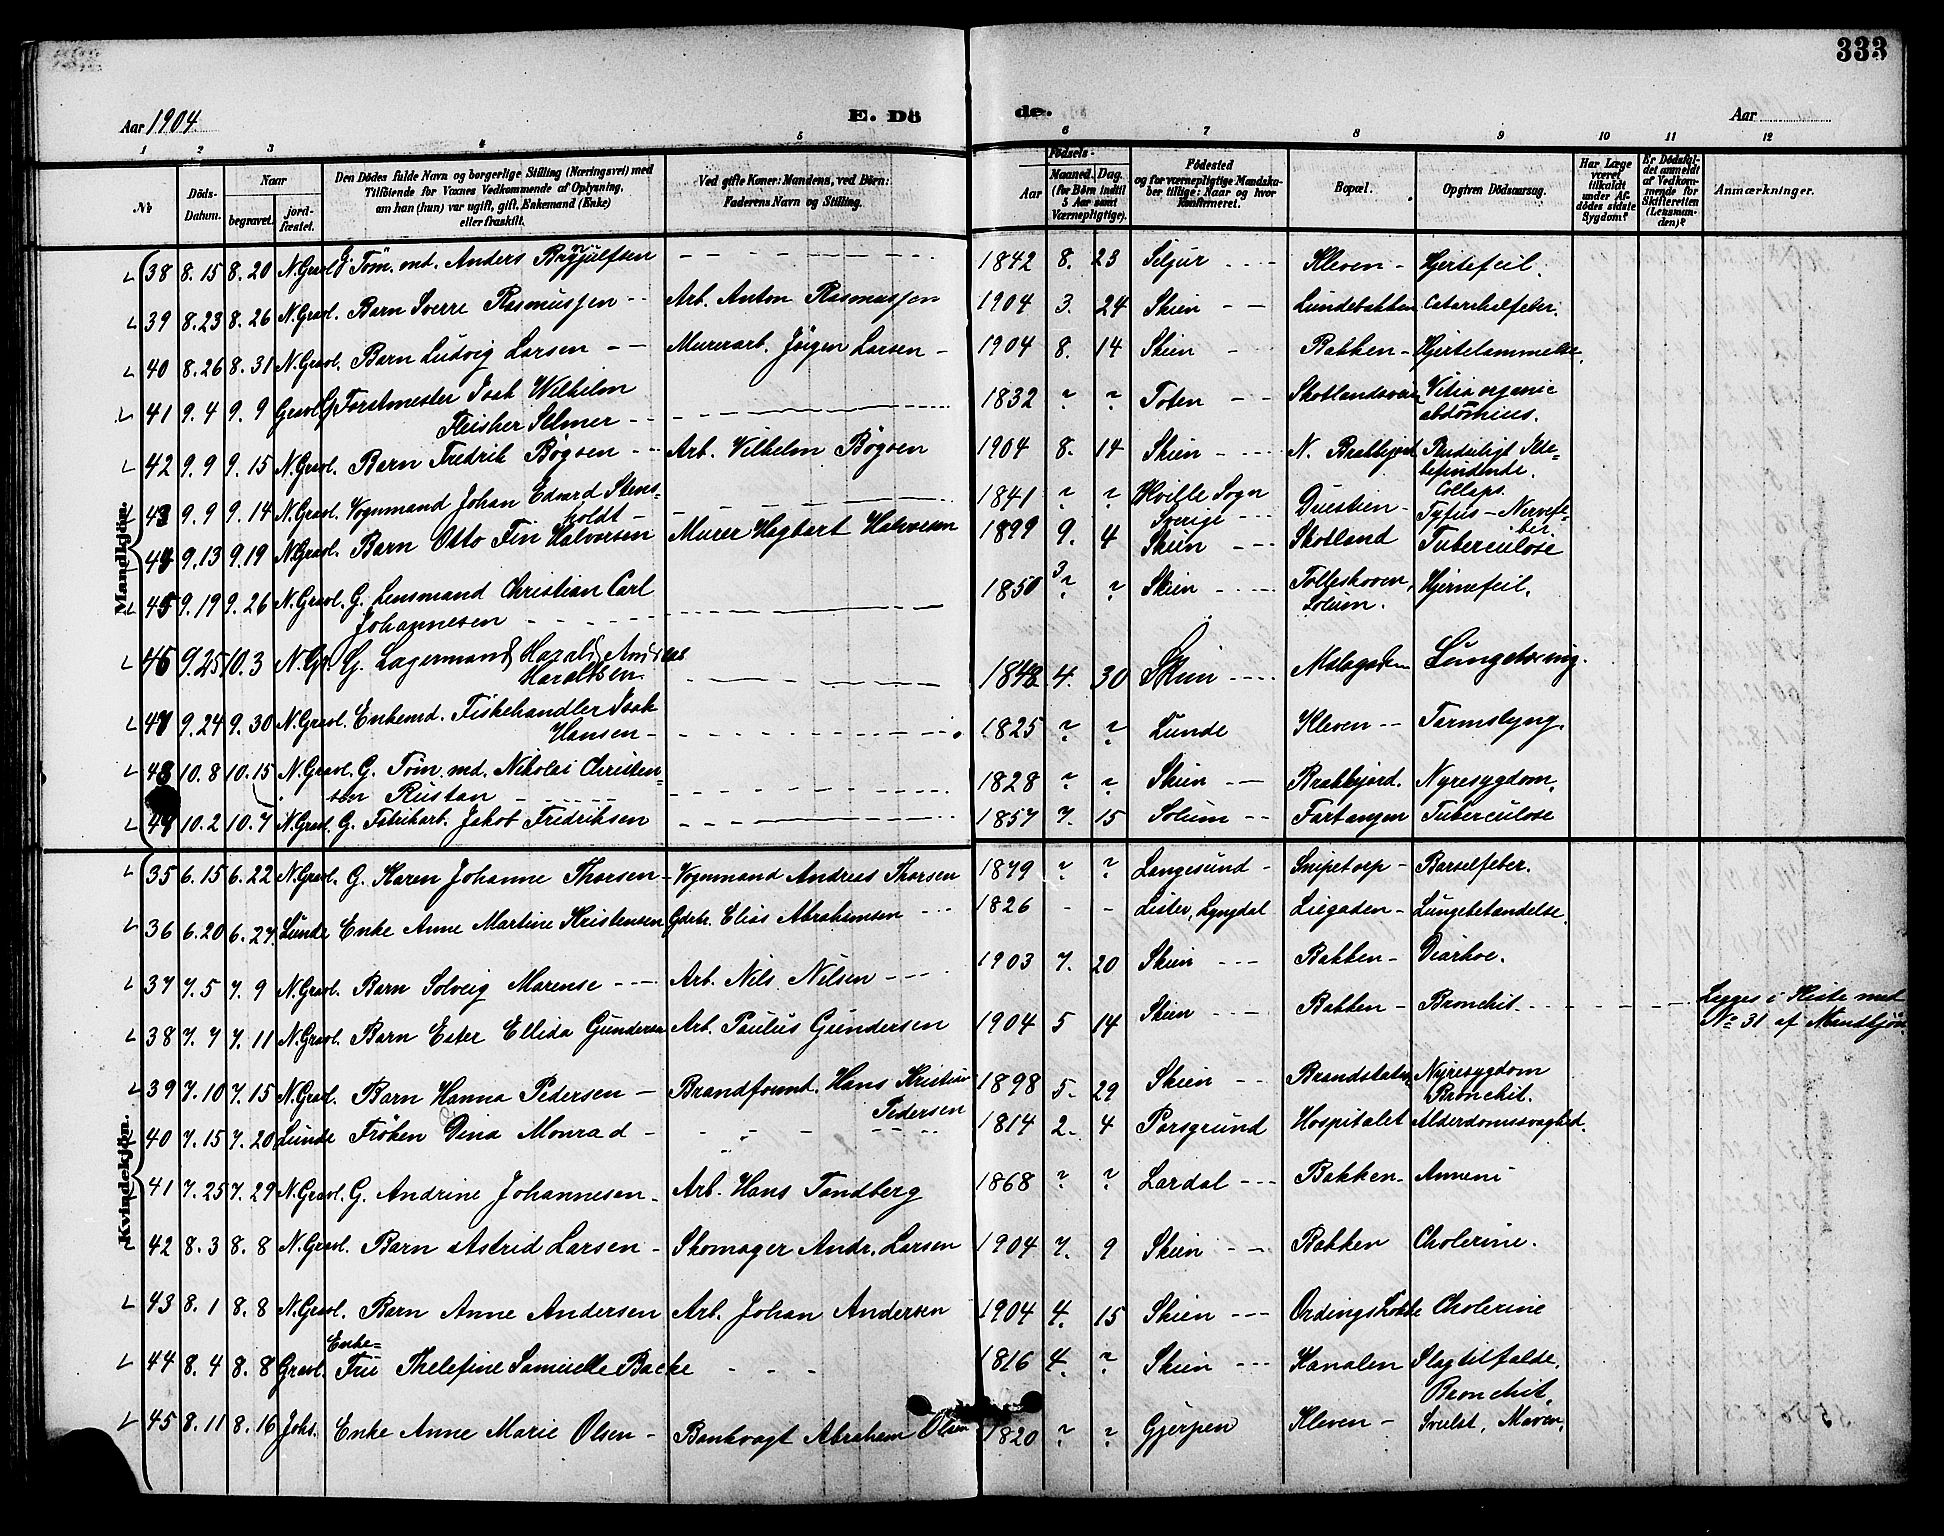 333
Aar 1904
E. Dö de.
Aar
1 2 3 4 5 6 7 8 9 10 11 12
№
Döds-Datum.
Naar
begravet.
jord-fæstet.
Den Dödes fulde Navn og borgerlige Stilling (Næringsvei) med
Tilföiende for Voxnes Vedkommende af Oplysning,
om han (hun) var ugift, gift, Enkemand (Enke)
eller fraskilt.
Ved gifte Koner: Mandens, ved Börn:
Faderens Navn og Stilling.
Födsels-
Aar
Maaned. Dag.
(for Börn indtil
5 Aar samt
Værnepligtige).
Födested
og for værnepligtige Mandska-
ber tillige: Naar og hvor
konfirmeret.
Bopæl.
Opgiven Dödsaarsag.
Har Læge
været
tilkaldt
under Af-
dödes sidste
Sygdom?
Er Dödsfal-
det anmeldt
af Vedkom-
mende for
Skifteretten
(Lensman-
den)?
Anmærkninger.
Mandkjön.
38 8. 15 8. 20 N. Gravl. G. Töm. md. Anders Brynjulfsen 1842 8. 23 Siljur Kleven Hjertefeil.
39 8. 23 8. 26 N. Gravl. Barn Sverre Rasmussen Arb. Anton Rasmussen 1904 3. 24 Skien Lundebakken Catarrhalfeber.
40 8. 26 8. 31 N. Gravl. Barn Ludvig Larsen Murerarb. Jörgen Larsen 1904 8. 14 Skien Bakken Hjertelammelse.
41 9. 4 9. 9 Gravl. G. Forstmester Isak Wilhelm 1832 ? ? Toten Skotlandsveien Vitia organic
Fleisher Selmer abdominis.
42 9. 9 9. 15 N. Gravl. Barn Fredrik Bögsen Arb. Vilhelm Bögsen 1904 8. 14 Skien N. Brekkejord Pludseligt Ilde-
befindende.
Collaps.
43 9. 9 9. 14 N. Gravl. Vognmand Johan Edvard Stens- 1841 ? ? Hville Sogn Duestien Tyfus - Nervefe-
holdt Sverige ber.
44 9. 13 9. 19 N. Gravl. Barn Otto Fin Halvorsen Murer Hagbart Halvorsen 1899 9. 4 Skien Skotland Tuberculose
45 9. 19 9. 26 N. Gravl. G. Lensmand Christian Carl 1850 3 ? ? Skien Folleskoven, Hjernefeil.
Johannesen Solum.
46 9. 25 10. 3 N. Gr. G. Lagermand Harald Andreas
Haraldsen 1848 4. 30 Skien Melagaden Lungetæring.
47 9. 24 9. 30 N. Gravl. Enkemd. Fiskehandler Isak 1825 ? ? Lunde Kleven Tarmslyng.
Hansen
48 10. 8 10. 15 N. Gravl. G. Töm. md. Nikolai Christen- 1828 ? ? Skien Brekkejord. Nyresygdom.
sen Rustan
49 10. 2 10. 7 N. Gravl. G. Fabrikarb. Jakob Fredriksen 1857 7. 15 Solum Fartangen Tuberculose
Kvindekjön.
35 6. 15 6. 22 N. Gravl. G. Karen Johanne Thorsen Vognmand Andreas Thorsen 1879 ? ? Langesund Snipetorp Barselfeber.
36 6. 20 6. 27 Lunde Enke Anne Martine Kristensen Gdebr. Elias Abrahamsen 1826 - - Lister, Lyngdal Liegaden Lungebetændelse.
37 7. 5 7. 9 N. Gravl. Barn Solveig Marense Arb. Nils Nilsen 1903 7. 20 Skien Bakken Diarhoe.
38 7. 7 7. 11 N. Gravl. Barn Ester Ellida Gundersen Arb. Paulus Gundersen 1904 5 14 Skien Bakken Bronchit. Ligges i Kiste med
No 31 af Mandkjön
39 7. 10 7. 15 N. Gravl. Barn Hanna Pedersen Brandformd. Hans Kristian 1898 5. 29 Skien Brandstatn. Nyresygdom
Pedersen Bronchit.
40 7. 15 7. 20 Lunde Fröken Dina Monrad 1814 2. 4 Porsgrund Hospitalet Alderdomssvaghed.
41 7. 25 7. 29 N. Gravl. G. Andrine Johannesen Arb. Hans Tandberg 1868 ? ? Lardal Bakken Anemi
42 8. 3 8. 8 N. Gravl. Barn Astrid Larsen Skomager Andr. Larsen 1904 7. 9 Skien Bakken Cholerine.
43 8. 1 8. 8 N. Gravl. Barn Anne Andersen Arb. Johan Andersen 1904 4. 15 Skien Ordings Lökke Cholerine
44 8. 4 8. 8 Gravl. Enke-
Fru Thelefine Samuelle Backe 1816 4. ? Skien Kanalen Slagtilfælde.
Bronchit
45 8. 11 8. 16 Johs. Enke Anne Marie Olsen Bankvagt Abraham Olsen 1820 ? ? Gjerpen Kleven Svulst, Maven.